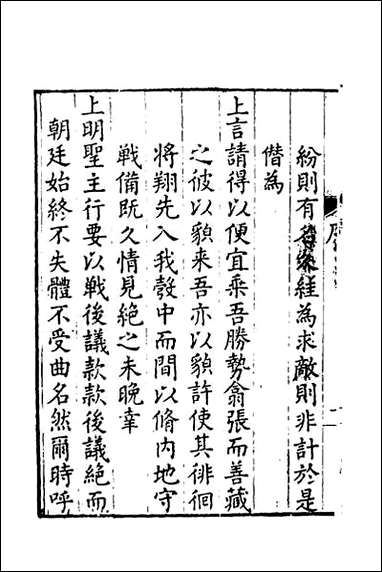 紛則有經為求敵則非計於是
僭為
上言請得以便宜乘吾勝勢翕張而善藏
之彼以貌來吾亦以貌許使其徘徊
將翔先入我彀中而間以脩內地守
戰備既久情見絕之未晚幸
上明聖主行要以戰後議款款後議絕而
朝廷始終不失體不受曲名然爾時呼